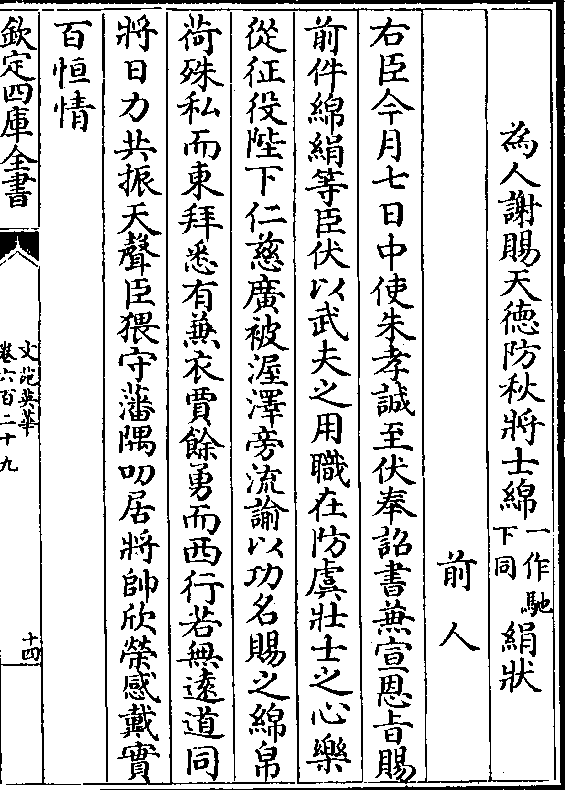 為人謝賜天徳防秋將士綿一作馳下同絹狀
前人
右臣今月七日中使朱孝誠至伏奉詔書兼宣恩旨賜
前件綿絹等臣伏以武夫之用職在防虞壯士之心樂
從征役陛下仁慈廣被渥澤旁流諭以功名賜之綿帛
荷殊私而東拜悉有兼衣賈餘勇而西行若無遠道同
將日力共振天聲臣猥守藩隅叨居將帥欣榮感戴實
百恒情
欽定四庫全書
文苑英華
卷六百二十九
十四